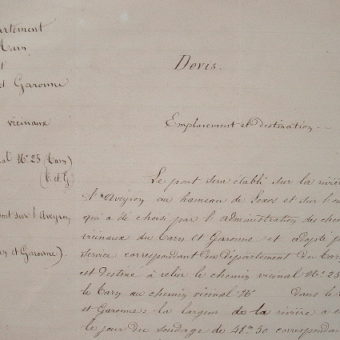 partement
Tarn
et
et Garonne
vicinaux
al N° 25 (Tarn)
(T et G)
ont sur l'Aveyron
n et Garonne).
Devis.
Emplacement et destination.
Le pont sera établi sur la riviè
l'Aveyron au hameau de et sur l'
qui a été choisi par l'administration des che
vicinaux du Tarn et Garonne et adopté p
service correspondant du département du Tar
est destiné à relier le chemin vicinal N° 25
le Tarn au chemin vicinal N° dans le
et Garonne; la largeur de la rivière a
le jour du sondage de 41m,50 correspondan